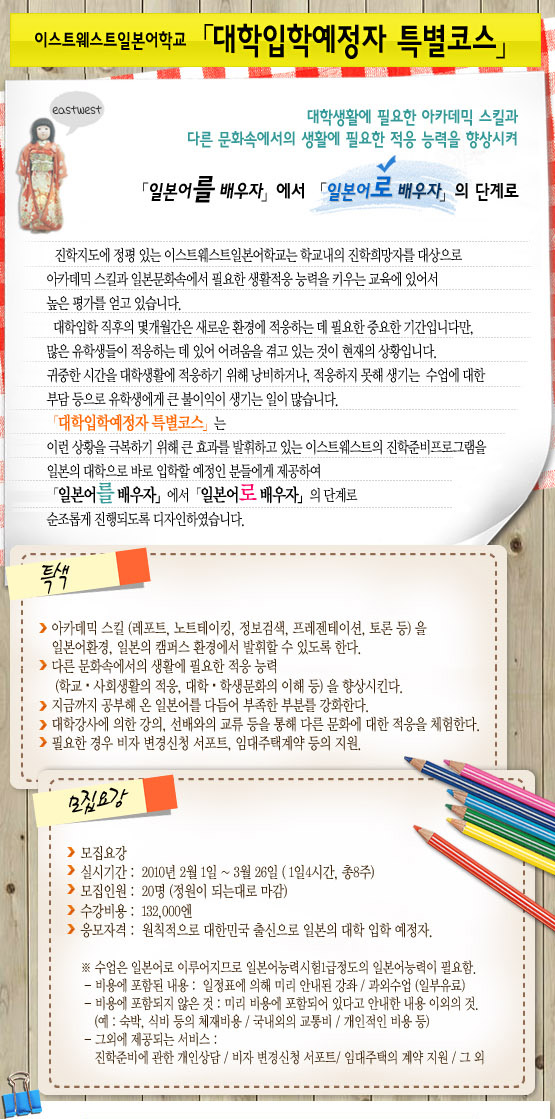 이스트웨스트일본어학교 「대학입학예정자 특별코스」
eastwest
대학생활에 필요한 아카데믹 스킬과
다른 문화속에서의 생활에 필요한 적응 능력을 향상시켜
「일본어를 배우자」에서 「일본어로 배우자」의 단계로
진학지도에 정평 있는 이스트웨스트일본어학교는 학교내의 진학희망자를 대상으로
아카데믹 스킬과 일본문화속에서 필요한 생활적응 능력을 키우는 교육에 있어서
높은 평가를 얻고 있습니다.
대학입학 직후의 몇개월간은 새로운 환경에 적응하는 데 필요한 중요한 기간입니다만,
많은 유학생들이 적응하는 데 있어 어려움을 겪고 있는 것이 현재의 상황입니다.
귀중한 시간을 대학생활에 적응하기 위해 낭비하거나, 적응하지 못해 생기는 수업에 대한
부담 등으로 유학생에게 큰 불이익이 생기는 일이 많습니다.
「대학입학예정자 특별코스」는
이런 상황을 극복하기 위해 큰 효과를 발휘하고 있는 이스트웨스트의 진학준비프로그램을
일본의 대학으로 바로 입학할 예정인 분들에게 제공하여
「일본어를 배우자」에서 「일본어로 배우자」의 단계로
순조롭게 진행되도록 디자인하였습니다.
특색
아카데믹 스킬 (레포트, 노트테이킹, 정보검색, 프레젠테이션, 토론 등) 을
일본어환경, 일본의 캠퍼스 환경에서 발휘할 수 있도록 한다.
다른 문화속에서의 생활에 필요한 적응 능력
(학교・사회생활의 적응, 대학・학생문화의 이해 등) 을 향상시킨다.
지금까지 공부해 온 일본어를 다듬어 부족한 부분를 강화한다.
대학강사에 의한 강의, 선배와의 교류 등을 통해 다른 문화에 대한 적응을 체험한다.
필요한 경우 비자 변경신청 서포트, 임대주택계약 등의 지원.
모집요강
모집요강
실시기간 : 2010년 2월 1일 ~ 3월 26일 ( 1일4시간, 총8주)
모집인원 : 20명 (정원이 되는대로 마감)
수강비용 : 132,000엔
응모자격 : 원칙적으로 대한민국 출신으로 일본의 대학 입학 예정자.
※ 수업은 일본어로 이루어지므로 일본어능력시험1급정도의 일본어능력이 필요함.
- 비용에 포함된 내용 : 일정표에 의해 미리 안내된 강좌 / 과외수업 (일부유료)
- 비용에 포함되지 않은 것 : 미리 비용에 포함되어 있다고 안내한 내용 이외의 것.
(예 : 숙박, 식비 등의 체재비용 / 국내외의 교통비 / 개인적인 비용 등)
- 그외에 제공되는 서비스 :
진학준비에 관한 개인상담 / 비자 변경신청 서포트/ 임대주택의 계약 지원 / 그 외